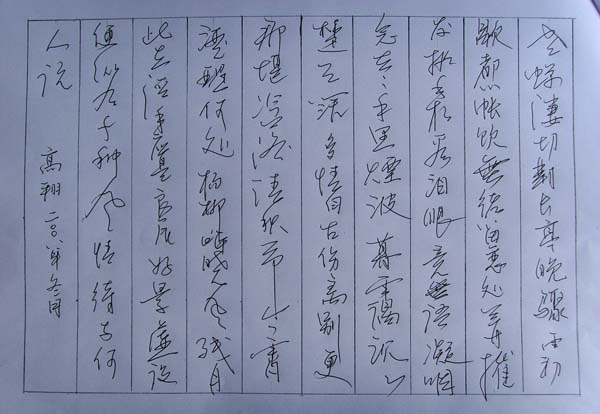 寒蝉淒切對长亭晚驟雨初
歇都门帐饮無绪留恋处兰舟摧
发执手相看泪眼竟無语凝咽
念去々千里煙波暮靄沉々
楚天阔多情自古伤离别更
那堪冷落清秋节今宵
酒醒何处杨柳岸晓风残月
此去经年应是良辰好景虚设
便纵有千种风情待与何
人说
高翔二〇〇八年冬月